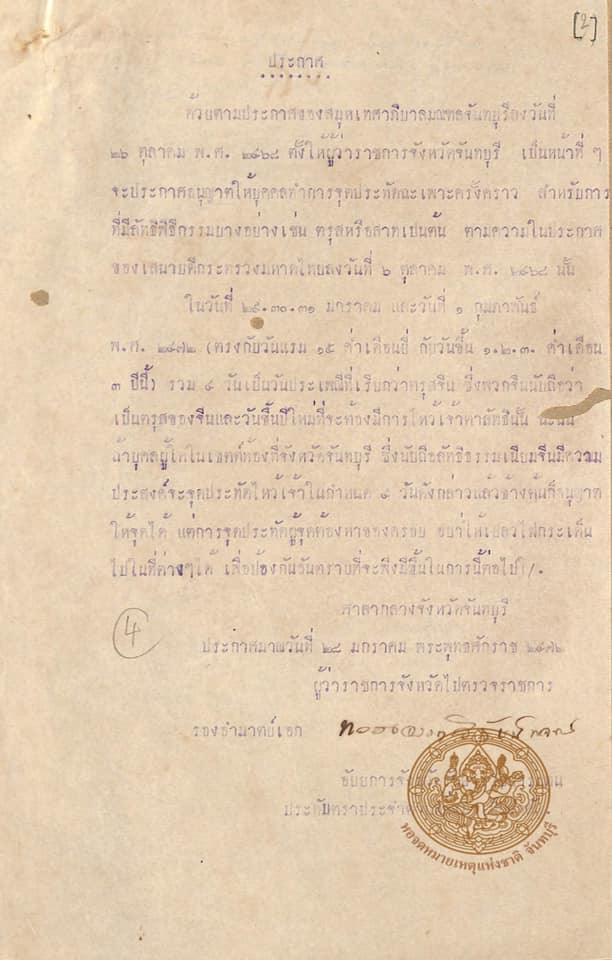 [2]
ประกาศ
ด้วยตามประกาศของสมุหเทศาภิบาลมณฑลจันทบุรีลงวันที่
๒๖ ตุลาคม พ.ศ. ๒๔๖๘ ตั้งให้ผู้ว่าราชการจังหวัดจันทบุรี เป็นหน้าที่ ๆ
จะประกาศอนุญาตให้บุคคลทำการจุดประทัดฉะเพาะครั้งคราว สำหรับการ
ที่มีลัทธิพิธีกรรมบางอย่างเช่น ตรุสหรือสาทเป็นต้น ตามความในประกาศ
ของเสนาบดีกระทรวงมหาดไทยลงวันที่ ๖ ตุลาคม พ.ศ. ๒๔๖๘ นั้น
ในวันที่ ๒๙.๓๐.๓๑ มกราคม และวันที่ ๑ กุมภาพันธ์
พ.ศ. ๒๔๗๒ (ตรงกับวันแรม ๑๕ ค่ำเดือนยี่ กับวันขึ้น ๑.๒.๓. ค่ำเดือน
๓ ปีนี้) รวม ๔ วันเป็นวันประเพณีที่เรียกว่าตรุสจีน ซึ่งพวกจีนนับถือว่า
เป็นตรุสของจีนและวันขึ้นปีใหม่ที่จะต้องมีการไหว้เจ้าตาลัทธินั้น ฉะนั้น
ถ้าบุคลผู้ใดในเขตต์ท้องที่จังหวัดจันทบุรี ซึ่งนับถือลัทธิธรรมเนียมจีนมีความ
ประสงค์จะจุดประทัดไหว้เจ้าในกำหนด ๔ วันดังกล่าวแล้วข้างต้นก็อนุญาต
ให้จุดได้ แต่การจุดประทัดผู้จุดต้องหาของครอบ อย่าให้เปลวไฟกระเด็น
ไปในที่ต่างๆได้ เพื่อป้องกันอันตรายที่จะพึงมีขึ้นในการนี้ต่อไป/.
ศาลากลางจังหวัดจันทบุรี
ประกาศมาณวันที่ ๒๘ มกราคม พระพุทธศักราช ๒๔๗๒
ผู้ว่าราชการจังหวัดไปตรวจราชการ
4
รองอำมาตย์เอก
ประทับตราประจำ
หอจดหมายเหตุแห่งชาติ จันทบุรี